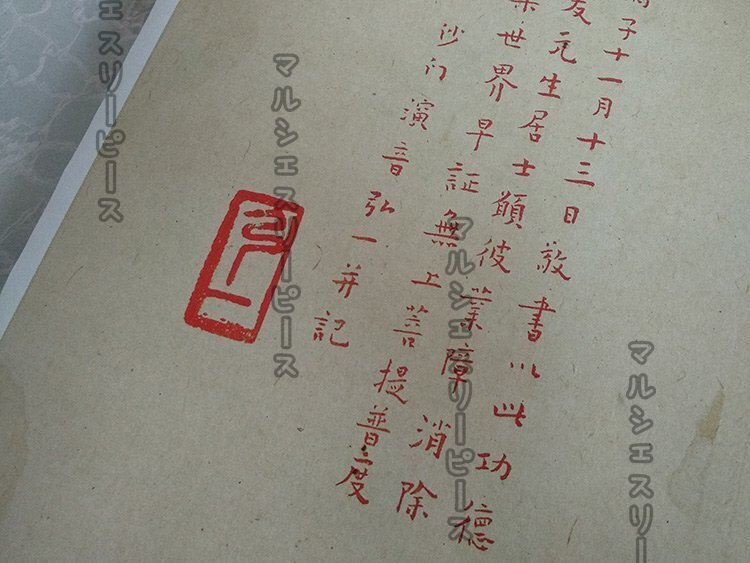 子十一月十三日敬書以此功德
友元生居士願彼業障消除
世界早証無上菩提普度
沙门演音弘一并記
ェスリーピース
マルシェスリーピース
マルシェスリーピース
マルシェスリー